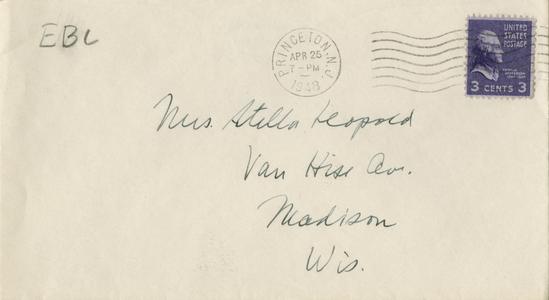 EBL
PRINCETON, N.J.
APR 25
7-PM
1948
UNITED
STATES
POSTAGE
3 CENTS 3
Mrs. Stella Leopold
Van Hise Av.
Madison
Wis.